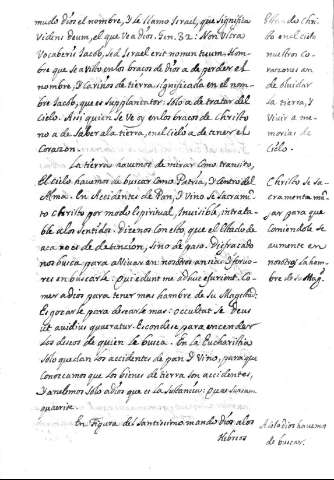 mudo dios el nombre, y se llamo Israel, que significa
Videns Deum, el que ve a Dios. Gen. 32: Non Ultra
Vocaberis Iacob, sed Israel erit nomen tuum. Hom-
bre que se a visto en los braços de dios a de perder el
nombre, y cariños de tierra significada en el nom-
bre Iacob, que es supplantator: solo a de tratar del
Cielo. Assi quien se ve oy en los braços de Christo
no a de saber a la tierra, en el Cielo a de tener el
Corazon.
La tierra havemos de mirar como transito,
el cielo havemos de buscar como Patria, y centro del
Alma. En Accidentes de Pan, y Vino se Sacramẽ-
to Christo por modo espiritual, Invisible, intrata-
ble a los sentidos: dicenos con esto, que el estado de
aca no es de detencion, sino de paso. Disfraçado
nos busca para avivar en nosotros ansias, y fervo-
res en buscarle: Qui edunt me adhuc esurient. Co-
mer a Dios para tener mas hambre de su Magestad:
Es goçarle para desearle mas: occultat se Deus
ut avidius quæratur. Escondese para encender
los deseos de quien le busca. En la Eucharistia
solo quedan los accidentes de pan, y Vino, para que
Conozcamos que los bienes de tierra son accidentes,
y anelemos solo a dios que es la substancia: Quæ sursum
quærite.
En Figura del Santissimo mando dios a los
Hebreos
El Christo
en el cielo
nuestros co-
razones an
de olvidar
la tierra, y
Vivir a me-
morias de
Cielo.
Christo se Sa-
cramenta
para que
Comiendole se
aumente en
nosotros la ham-
bre de su Magd.
A solo dios havemos
de buscar.